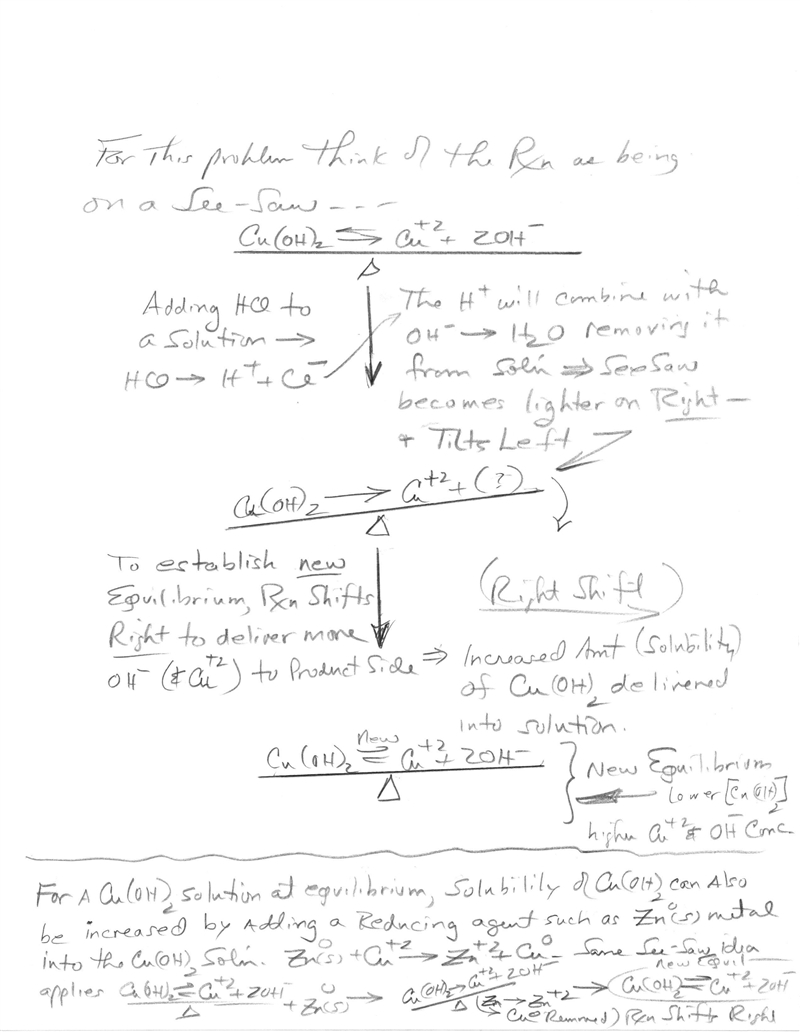 For This problem Think of the Rxn as being
on a See-Saw ----
Cu(OH)₂ ⇌ Cu⁺² + 2OH⁻
Δ
Adding HCl to
a Solution →
HCl → H⁺ + Cl⁻
The H⁺ will combine with
OH⁻ → H₂O removing it
from Sol'n ⇒ See Saw
becomes lighter on Right –
+ Tilts Left
Cu(OH)₂ → Cu⁺² + (?)
Δ
To establish new
Equilibrium, Rxn Shifts
Right to deliver more
OH⁻ (& Cu⁺²) to Product Side ⇒
(Right Shift)
Increased Amt (Solubility)
of Cu(OH)₂ delivered
into solution.
New
Cu(OH)₂ ⇌ Cu⁺² + 2OH⁻
Δ
New Equilibrium
lower [Cu(OH)₂]
higher Cu⁺² & OH⁻ Conc
For A Cu(OH)₂ solution at equilibrium, Solubility of Cu(OH)₂ can Also
be increased by Adding a Reducing agent such as Zn⁰(s) metal
into the Cu(OH)₂ Sol'n. Zn⁰(s) + Cu⁺² → Zn⁺² + Cu⁰. Same See-Saw idea
applies Cu(OH)₂ ⇌ Cu⁺² + 2OH⁻ + Zn⁰(s) → Cu(OH)₂ → Cu⁺² + 2OH⁻ → Cu(OH)₂ ⇌ Cu⁺² + 2OH⁻
new Equil
Δ
Δ (Zn → Zn⁺²
Cu⁰ Removed) Rxn Shifts Right